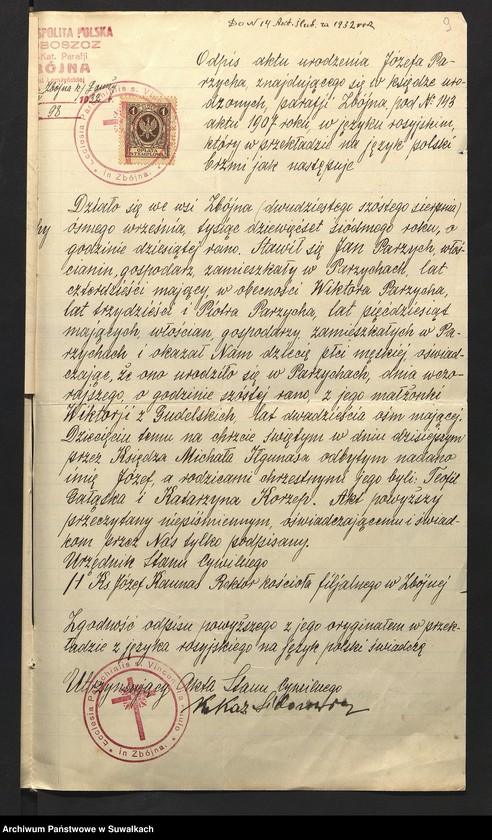 Do N 14 Akt. Ślub. za 1932 rok
9
SPOLITA POLSKA
OBOSZCZ
-Kat. Parafji
BÓJNA
Zbójna
1932
98
Ecclesia Parochialis
in Zbójna
OPŁATA STEMPLOWA
Odpis aktu urodzenia Józefa Pa-
rzycha, znajdującego się w księdze uro-
dzonych, parafji Zbójna, pod № 143
aktu 1907 roku w języku rosyjskim,
który w przekładzie na język polski
brzmi jak następuje
Działo się we wsi Zbójna (dwudziestego szóstego sierpnia)
ósmego września, tysiąc dziewięcset siódmego roku, o
godzinie dziesiątej rano. Stawił się Jan Parzych, włoś-
cianin, gospodarz, zamieszkały w Parzychach, lat
czterdzieści mający w obecności Wiktora Parzycha,
lat trzydzieści i Piotra Parzycha, lat pięćdziesiąt
mających, włościan gospodarzy, zamieszkałych w Pa-
rzychach i okazał Nam dziecię płci męskiej oświad-
czając, że ono urodziło się w Parzychach, dnia wczo-
rajszego, o godzinie szóstej rano, z jego małżonki
Wiktorji z Gudelskich, lat dwadzieścia ośm mającej.
Dziecięciu temu na chrzcie świętym w dniu dzisiejszym
przez Księdza Michała odbytym nadano
imię Józef, a rodzicami chrzestnymi jego byli: Teofil
Gałązka i Katarzyna Korzep. Akt powyższy
przeczytany niepiśmiennym, oświadczającemu i świad-
kom przez Nas tylko podpisany.
Urzędnik Stanu Cywilnego
Ks. Józef Kaunas Rektor kościoła filjalnego w Zbójnej
Zgodność odpisu powyższego z jego oryginałem w przek-
ładzie z języka rosyjskiego na język polski świadczę
Utrzymujący Akta Stanu Cywilnego
Ecclesia Parochialis
in Zbójna
Archiwum Państwowe w Suwałkach